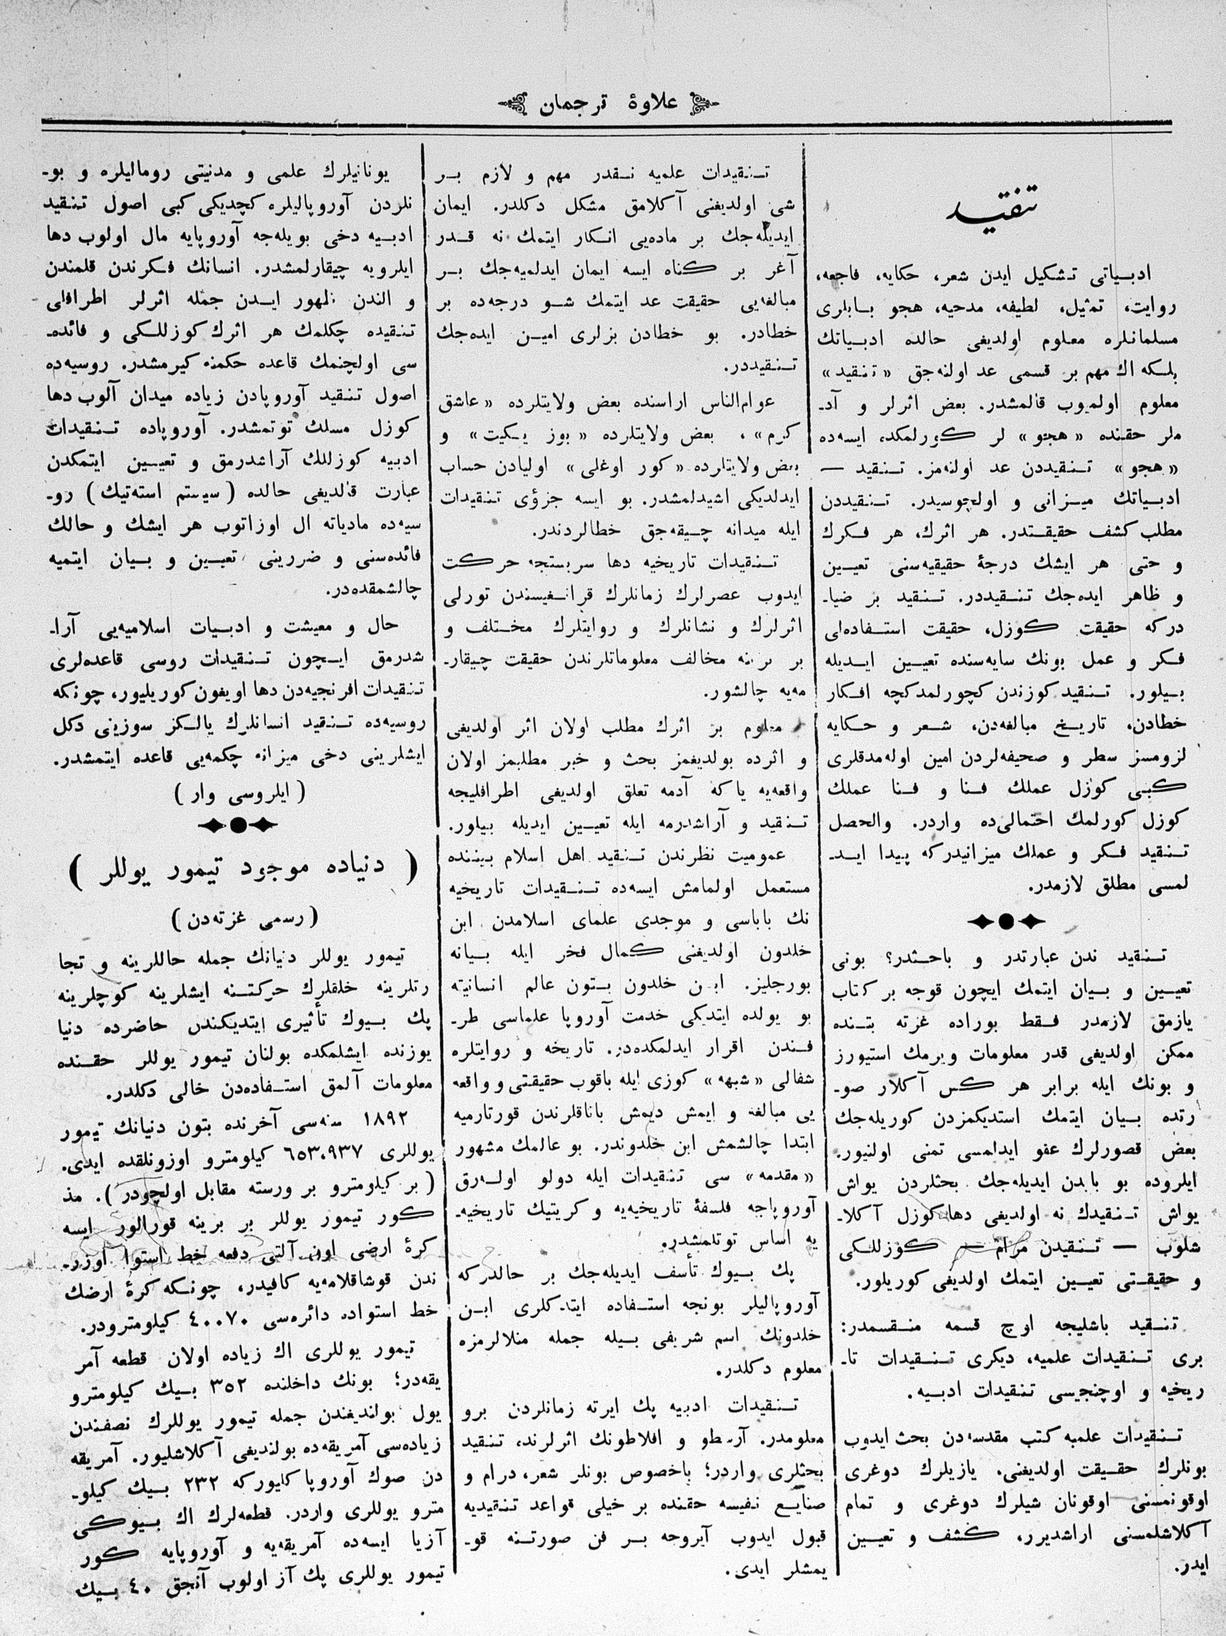 علاوۀ ترجمان
تنقید
ادبیاتی تشکیل ایدن شعر، حکایه، فاجعه،
روایت، تمثیل، لطیفه، مدحیه، هجو بابلری
مسلمانلره معلوم اولدیغی حالده ادبیاتك
بلکه اك مهم بر قسمی عد اولنه‌جق «تنقید»
معلوم اولمیوب قالمشدر. بعض اثرلر و آد-
ملر حقنده «هجو» لر کورلمکده ایسه‌ده
«هجو» تنقیددن عد اولنه‌مز. تنقید —
ادبیاتك میزانی و اولچوسیدر. تنقیددن
مطلب کشف حقیقتدر. هر اثرك، هر فکرك
و حتی هر ایشك درجۀ حقیقیه‌سنی تعیین
و ظاهر ایده‌جك تنقیددر. تنقید بر ضیا-
درکه حقیقت کوزل، حقیقت استفاده‌لی
فکر و عمل بونك سایه‌سنده تعیین ایدیله
بیلور. تنقید کوزندن کچورلمدکچه افکار
خطادن، تاریخ مبالغه‌دن، شعر و حکایه
لزومسز سطر و صحیفه‌لردن امین اوله‌مدقلری
کبی کوزل عملك فنا و فنا عملك
کوزل کورلمك احتمالی‌ده واردر. والحصل
تنقید فکر و عملك میزانیدرکه پیدا اید-
لمسی مطلق لازمدر.
تنقید ندن عبارتدر و باحثدر؟ بونی
تعیین و بیان ایتمك ایچون قوجه بر کتاب
یازمق لازمدر فقط بوراده غزته بتنده
ممکن اولدیغی قدر معلومات ویرمك استیورز
و بونك ایله برابر هر کس آکلار صو-
رتده بیان ایتمك استدیکمزدن کوریله‌جك
بعض قصورلرك عفو ایدلمسی تمنی اولنیور.
ایلروده بو بابدن ایدیله‌جك بحثلردن یواش
یواش تنقیدك نه اولدیغی دها کوزل آکلا-
شلوب — تنقیدن مرام — کوزللکی
و حقیقتی تعیین ایتمك اولدیغی کوریلور.
تنقید باشلیجه اوچ قسمه منقسمدر:
بری تنقیدات علمیه، دیکری تنقیدات تا-
ریخیه و اوچنجیسی تنقیدات ادبیه.
تنقیدات علمیه کتب مقدسه‌دن بحث ایدوب
بونلرك حقیقت اولدیغنی. یازیلرك دوغری
اوقونمسنی اوقونان شیلرك دوغری و تمام
آکلاشلمسنی اراشدیرر، کشف و تعیین
ایدر.
تنقیدات علمیه نقدر مهم و لازم بر
شی اولدیغنی آکلامق مشکل دکلدر. ایمان
ایدیله‌جك بر ماده‌یی انکار ایتمك نه قدر
آغر بر کناه ایسه ایمان ایدلمیه‌جك بر
مبالغه‌یی حقیقت عد ایتمك شو درجه‌ده بر
خطادر. بو خطادن بزلری امین ایده‌جك
تنقیددر.
عوام‌الناس اراسنده بعض ولایتلرده «عاشق
کرم»، بعض ولایتلرده «بوز یکیت» و
بعض ولایتلرده «کور اوغلی» اولیادن حساب
ایدلدیکی اشیدلمشدر. بو ایسه جزؤی تنقیدات
ایله میدانه چیقه‌جق خطالردندر.
تنقیدات تاریخیه دها سربستجه حرکت
ایدوب عصرلرك زمانلرك قراغیسندن تورلی
اثرلرك و نشانلرك و روایتلرك مختلف و
بر برینه مخالف معلوماتلرندن حقیقت چیقار-
مه‌یه چالشور.
معلوم بز اثرك مطلب اولان اثر اولدیغی
و اثرده بولدیغمز بحث و خبر مطلبمز اولان
واقعه‌یه یاکه آدمه تعلق اولدیغی اطرافلیجه
تنقید و آراشدرمه ایله تعیین ایدیله بیلور.
عمومیت نظرندن تنقید اهل اسلام بیننده
مستعمل اولمامش ایسه‌ده تنقیدات تاریخیه
نك باباسی و موجدی علمای اسلامدن ابن
خلدون اولدیغنی کمال فخر ایله بیانه
بورجلیز. ابن خلدون بتون عالم انسانیته
بو یولده ایتدیکی خدمت آوروپا علماسی طر-
فندن اقرار ایدلمکده‌در. تاریخه و روایتلره
شفالی «شبهه» کوزی ایله باقوب حقیقتی و واقعه
یی مبالغه و ایمش دیمش باتاقلرندن قورتارمیه
ابتدا چالشمش ابن خلدوندر. بو عالمك مشهور
«مقدمه» سی تنقیدات ایله دولو اوله‌رق
آوروپاجه فلسفۀ تاریخیه‌یه و کریتیك تاریخیه-
یه اساس توتلمشدر.
پك بیوك تأسف ایدیله‌جك بر حالدرکه
آوروپالیلر بونجه استفاده ایتدکلری ابن
خلدونك اسم شریفی بیله جمله منلالرمزه
معلوم دکلدر.
تنقیدات ادبیه پك ایرته زمانلردن برو
معلومدر. آرسطو و افلاطونك اثرلرند، تنقید
بحثلری واردر؛ باخصوص بونلر شعر، درام و
صنایع نفیسه حقنده بر خیلی قواعد تنقیدیه
قبول ایدوب آیروجه بر فن صورتنه قو-
یمشلر ایدی.
یونانیلرك علمی و مدنیتی رومالیلره و بو-
نلردن آوروپالیلره کچدیکی کبی اصول تنقید
ادبیه دخی بویله‌جه آوروپایه مال اولوب دها
ایلرویه چیقارلمشدر. انسانك فکرندن قلمندن
و الندن ظهور ایدن جمله اثرلر اطرافلی
تنقیده چکلمك هر اثرك کوزللکی و فائده-
سی اولچنمك قاعده حکمنه کیرمشدر. روسیه‌ده
اصول تنقید آوروپادن زیاده میدان آلوب دها
کوزل مسلك توتمشدر. آوروپاده تنقیدات
ادبیه کوزللك آراشدرمق و تعیین ایتمکدن
عبارت قالدیغی حالده (سیستم استه‌تیك) رو-
سیه‌ده مادیاته ال اوزاتوب هر ایشك و حالك
فائده‌سنی و ضررینی تعیین و بیان ایتمیه
چالشمقده‌در.
حال و معیشت و ادبیات اسلامیه‌یی آرا-
شدرمق ایچون تنقیدات روسی قاعده‌لری
تنقیدات افرنجیه‌دن دها اویغون کوریلیور، چونکه
روسیه‌ده تنقید انسانلرك یالکز سوزینی دکل
ایشلرینی دخی میزانه چکمه‌یی قاعده ایتمشدر.
(ایلروسی وار)
(دنیاده موجود تیمور یوللر)
(رسمی غزته‌دن)
تیمور یوللر دنیانك جمله حاللرینه و تجا
رتلرینه خلقلرك حرکتنه ایشلرینه کوچلرینه
پك بیوك تأثیری ایتدیکندن حاضرده دنیا
یوزنده ایشلمکده بولنان تیمور یوللر حقنده
معلومات آلمق استفاده‌دن خالی دکلدر.
١٨٩٢ سنه‌سی آخرنده بتون دنیانك تیمور
یوللری ٦٥٣،٩٣٧ کیلومترو اوزونلقده ایدی.
(بر کیلومترو بر ورسته مقابل اولچودر). مذ
کور تیمور یوللر بر برینه قورالور ایسه
کرۀ ارضی اون آلتی دفعه خط استوا اوزر-
ندن قوشاقلامه‌یه کافیدر، چونکه کرۀ ارضك
خط استواده دائره‌سی ٤٠٠٧٠ کیلومترودر.
تیمور یوللری اك زیاده اولان قطعه آمر
یقه‌در؛ بونك داخلنده ٣٥٢ بیك کیلومترو
یول بولندیغندن جمله تیمور یوللرك نصفندن
زیاده‌سی آمریقه‌ده بولندیغی آکلاشلیور. آمریقه
دن صوك آوروپا کلیورکه ٢٣٢ بیك کیلو-
مترو یوللری واردر. قطعه‌لرك اك بیوکی
آزیا ایسه‌ده آمریقه‌یه و آوروپایه کور
تیمور یوللری پك آز اولوب آنجق ٤٠ بیك